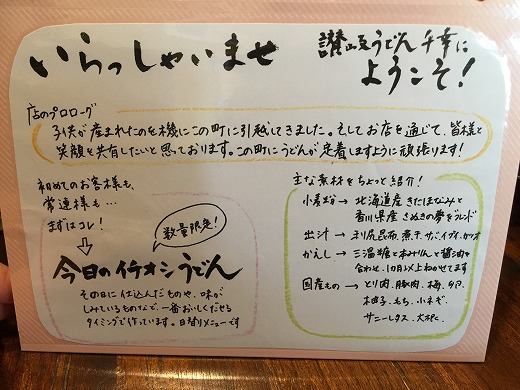 いらっしゃいませ
讃岐うどん千幸に
ようこそ!
店のプロローグ
子供が産まれたのを機にこの町に引越してきました。そしてお店を通じて、皆様と
笑顔を共有したいと思っております。この町にうどんが定着しますように頑張ります!
初めてのお客様も、
常連様も…
まずはコレ!
数量限定!
今日のイチオシうどん
その日に仕込んだものや、味が
しみているものなど、一番おいしくだせる
タイミングで作っています。日替りメニューです
主な素材をちょっと紹介!
小麦粉→北海道産きたほなみと
香川県産さぬきの夢をブレンド
出汁→利尻昆布、煮干、サバ、イワシ、カツオ
かえし→三温糖と本みりんと醤油を
合わせ、1カ月以上ねかせてます
国産もの→とり肉、豚肉、梅、卵、
柚子、もち、小ネギ、
サニーレタス、大根